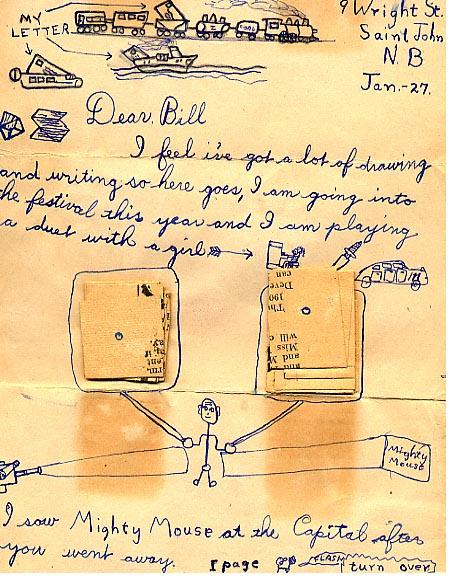 9 Wright St.
Saint John
N.B
Jan.-27.
MY
LETTER
Dear Bill
I feel i've got a lot of drawing
and writing so here goes, I am going into
the festival this year and I am playing
a duet with a girl
can
Deve
190
Th
will
Miss
and M
and
Mighty
Mouse
I saw Mighty Mouse at the Capital after
you went away.
1 page
FLASH
turn over